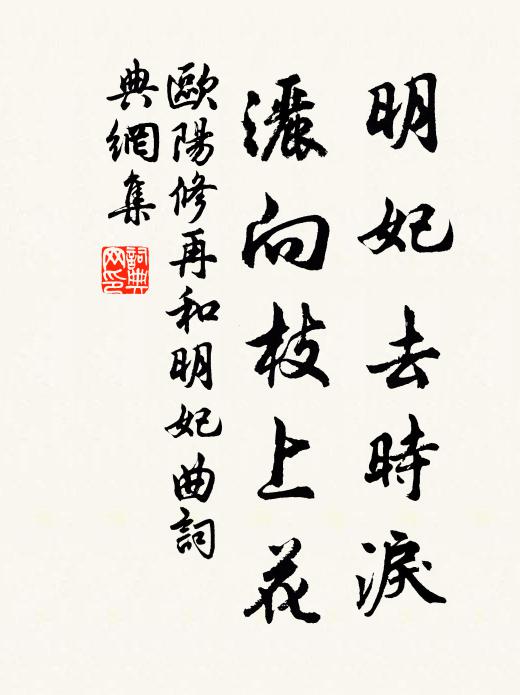 明妃去時淚
灑向枝上花
歐陽修再和明妃曲詞
典網集
詞典
网印